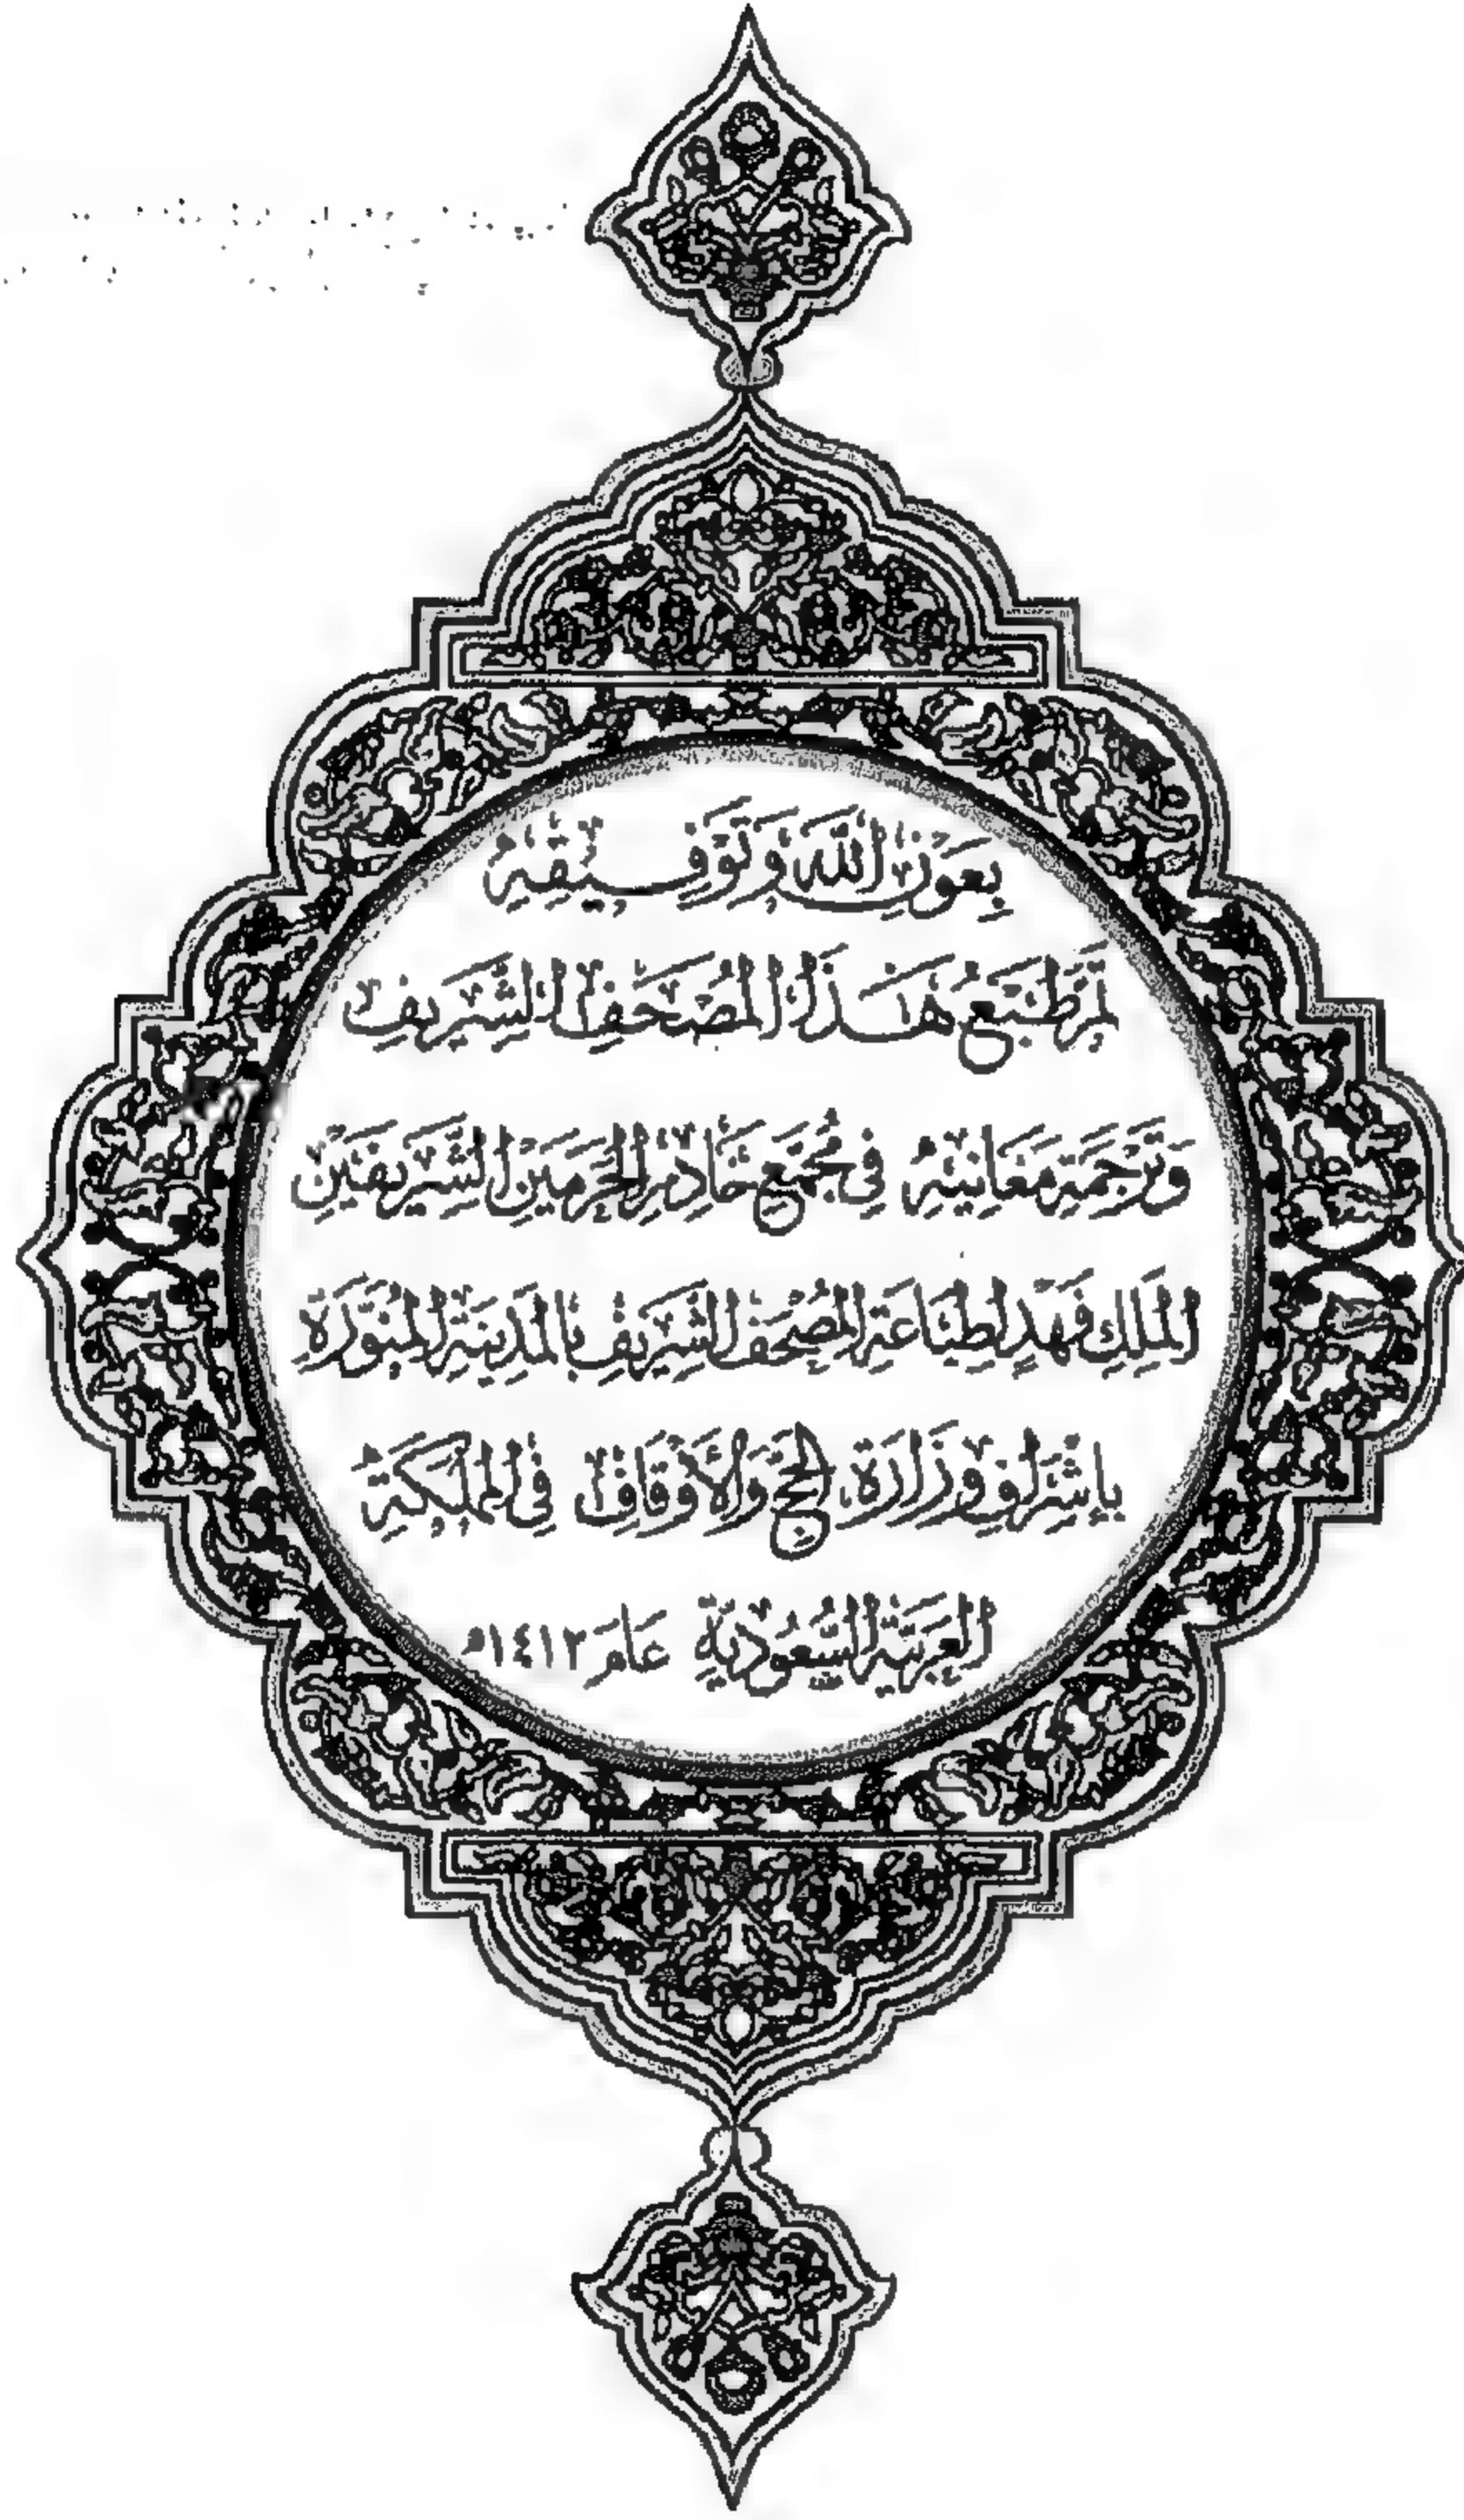 بِعَوْنِ اللَّهِ وَتَوْفِيقِهِ
تَمَّ طَبْعُ هَذَا الْمُصْحَفِ الشَّرِيفِ
وَتَرْجَمَةِ مَعَانِيهِ فِي مُجَمَّعِ خَادِمِ الْحَرَمَيْنِ الشَّرِيفَيْنِ
الْمَلِكِ فَهْدٍ لِطِبَاعَةِ الْمُصْحَفِ الشَّرِيفِ بِالْمَدِينَةِ الْمُنَوَّرَةِ
بِإِشْرَافِ وِزَارَةِ الْحَجِّ وَالْأَوْقَافِ فِي الْمَمْلَكَةِ
الْعَرَبِيَّةِ السَّعُودِيَّةِ عَامَ ١٤١٢ه